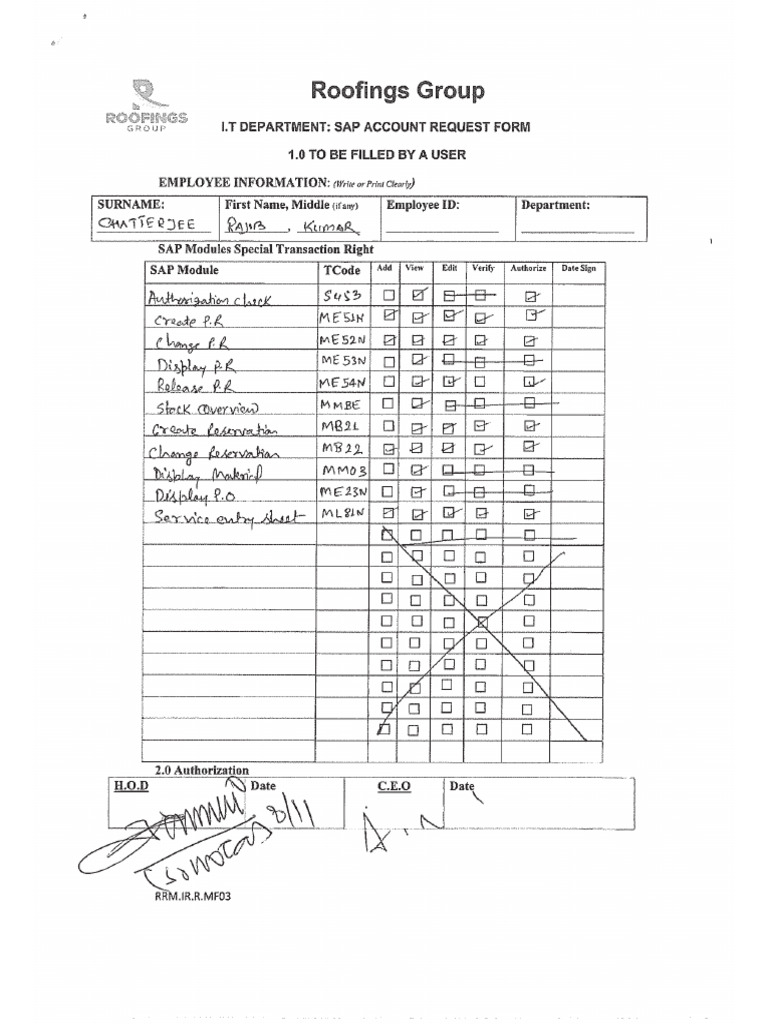 Roofings Group
ROOFINGS
GROUP
I.T DEPARTMENT: SAP ACCOUNT REQUEST FORM
1.0 TO BE FILLED BY A USER
EMPLOYEE INFORMATION: (Write or Print Clearly)
SURNAME: First Name, Middle (if any) Employee ID: Department:
CHATTERJEE RAJIB, KUMAR
SAP Modules Special Transaction Right
SAP Module TCode Add View Edit Verify Authorize Date Sign
Authorization check SU53
Create P.R ME51N
Change P.R ME52N
Display P.R ME53N
Release P.R ME54N
Stock Overview MMBE
Create Reservation MB21
Change Reservation MB22
Display Material MM03
Display P.O ME23N
Service entry sheet ML81N
2.0 Authorization
H.O.D Date C.E.O Date
8/11
RRM.IR.R.MF03